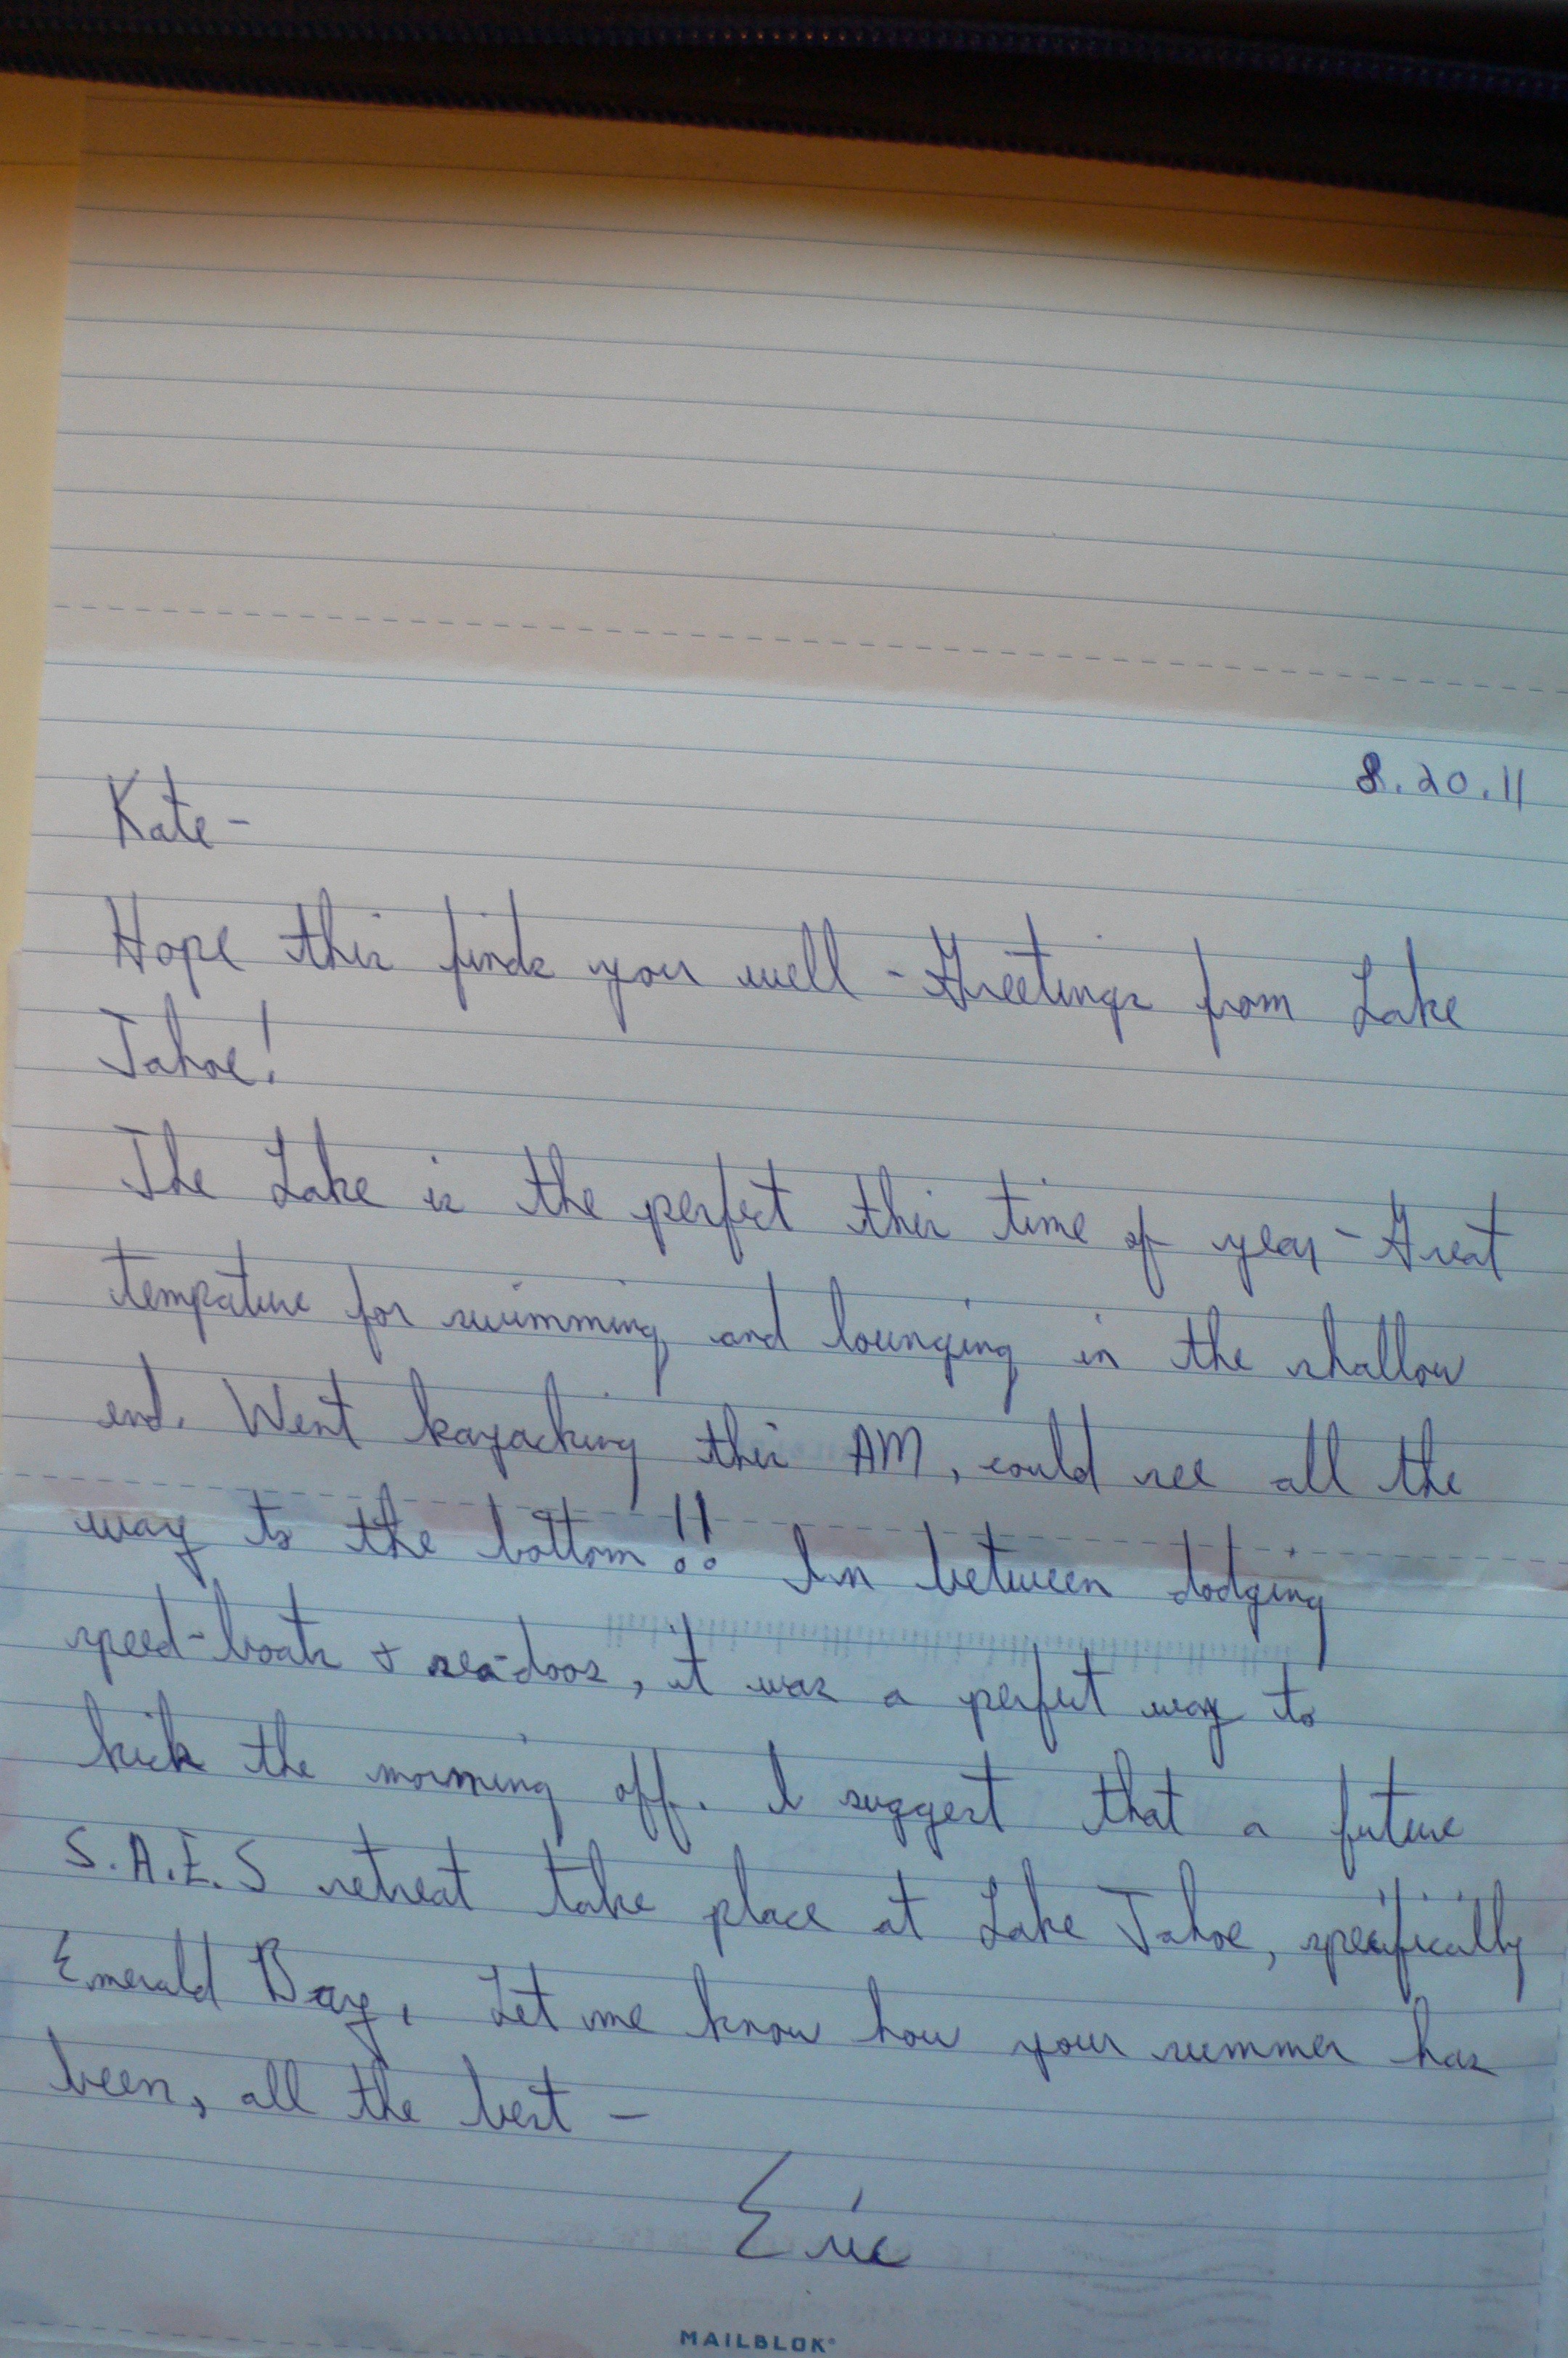 8.20.11
Kate-
Hope this finds you well - Greetings from Lake
Tahoe!
The Lake is the perfect this time of year - Great
tempature for swimming and lounging in the shallow
end. Went kayacking this AM, could see all the
way to the bottom!! In between dodging
speed-boats & sea-doos, it was a perfect way to
kick the morning off. I suggest that a future
S.A.E.S retreat take place at Lake Tahoe, specifically
Emerald Bay. Let me know how your summer has
been, all the best -
Eric
MAILBLOK